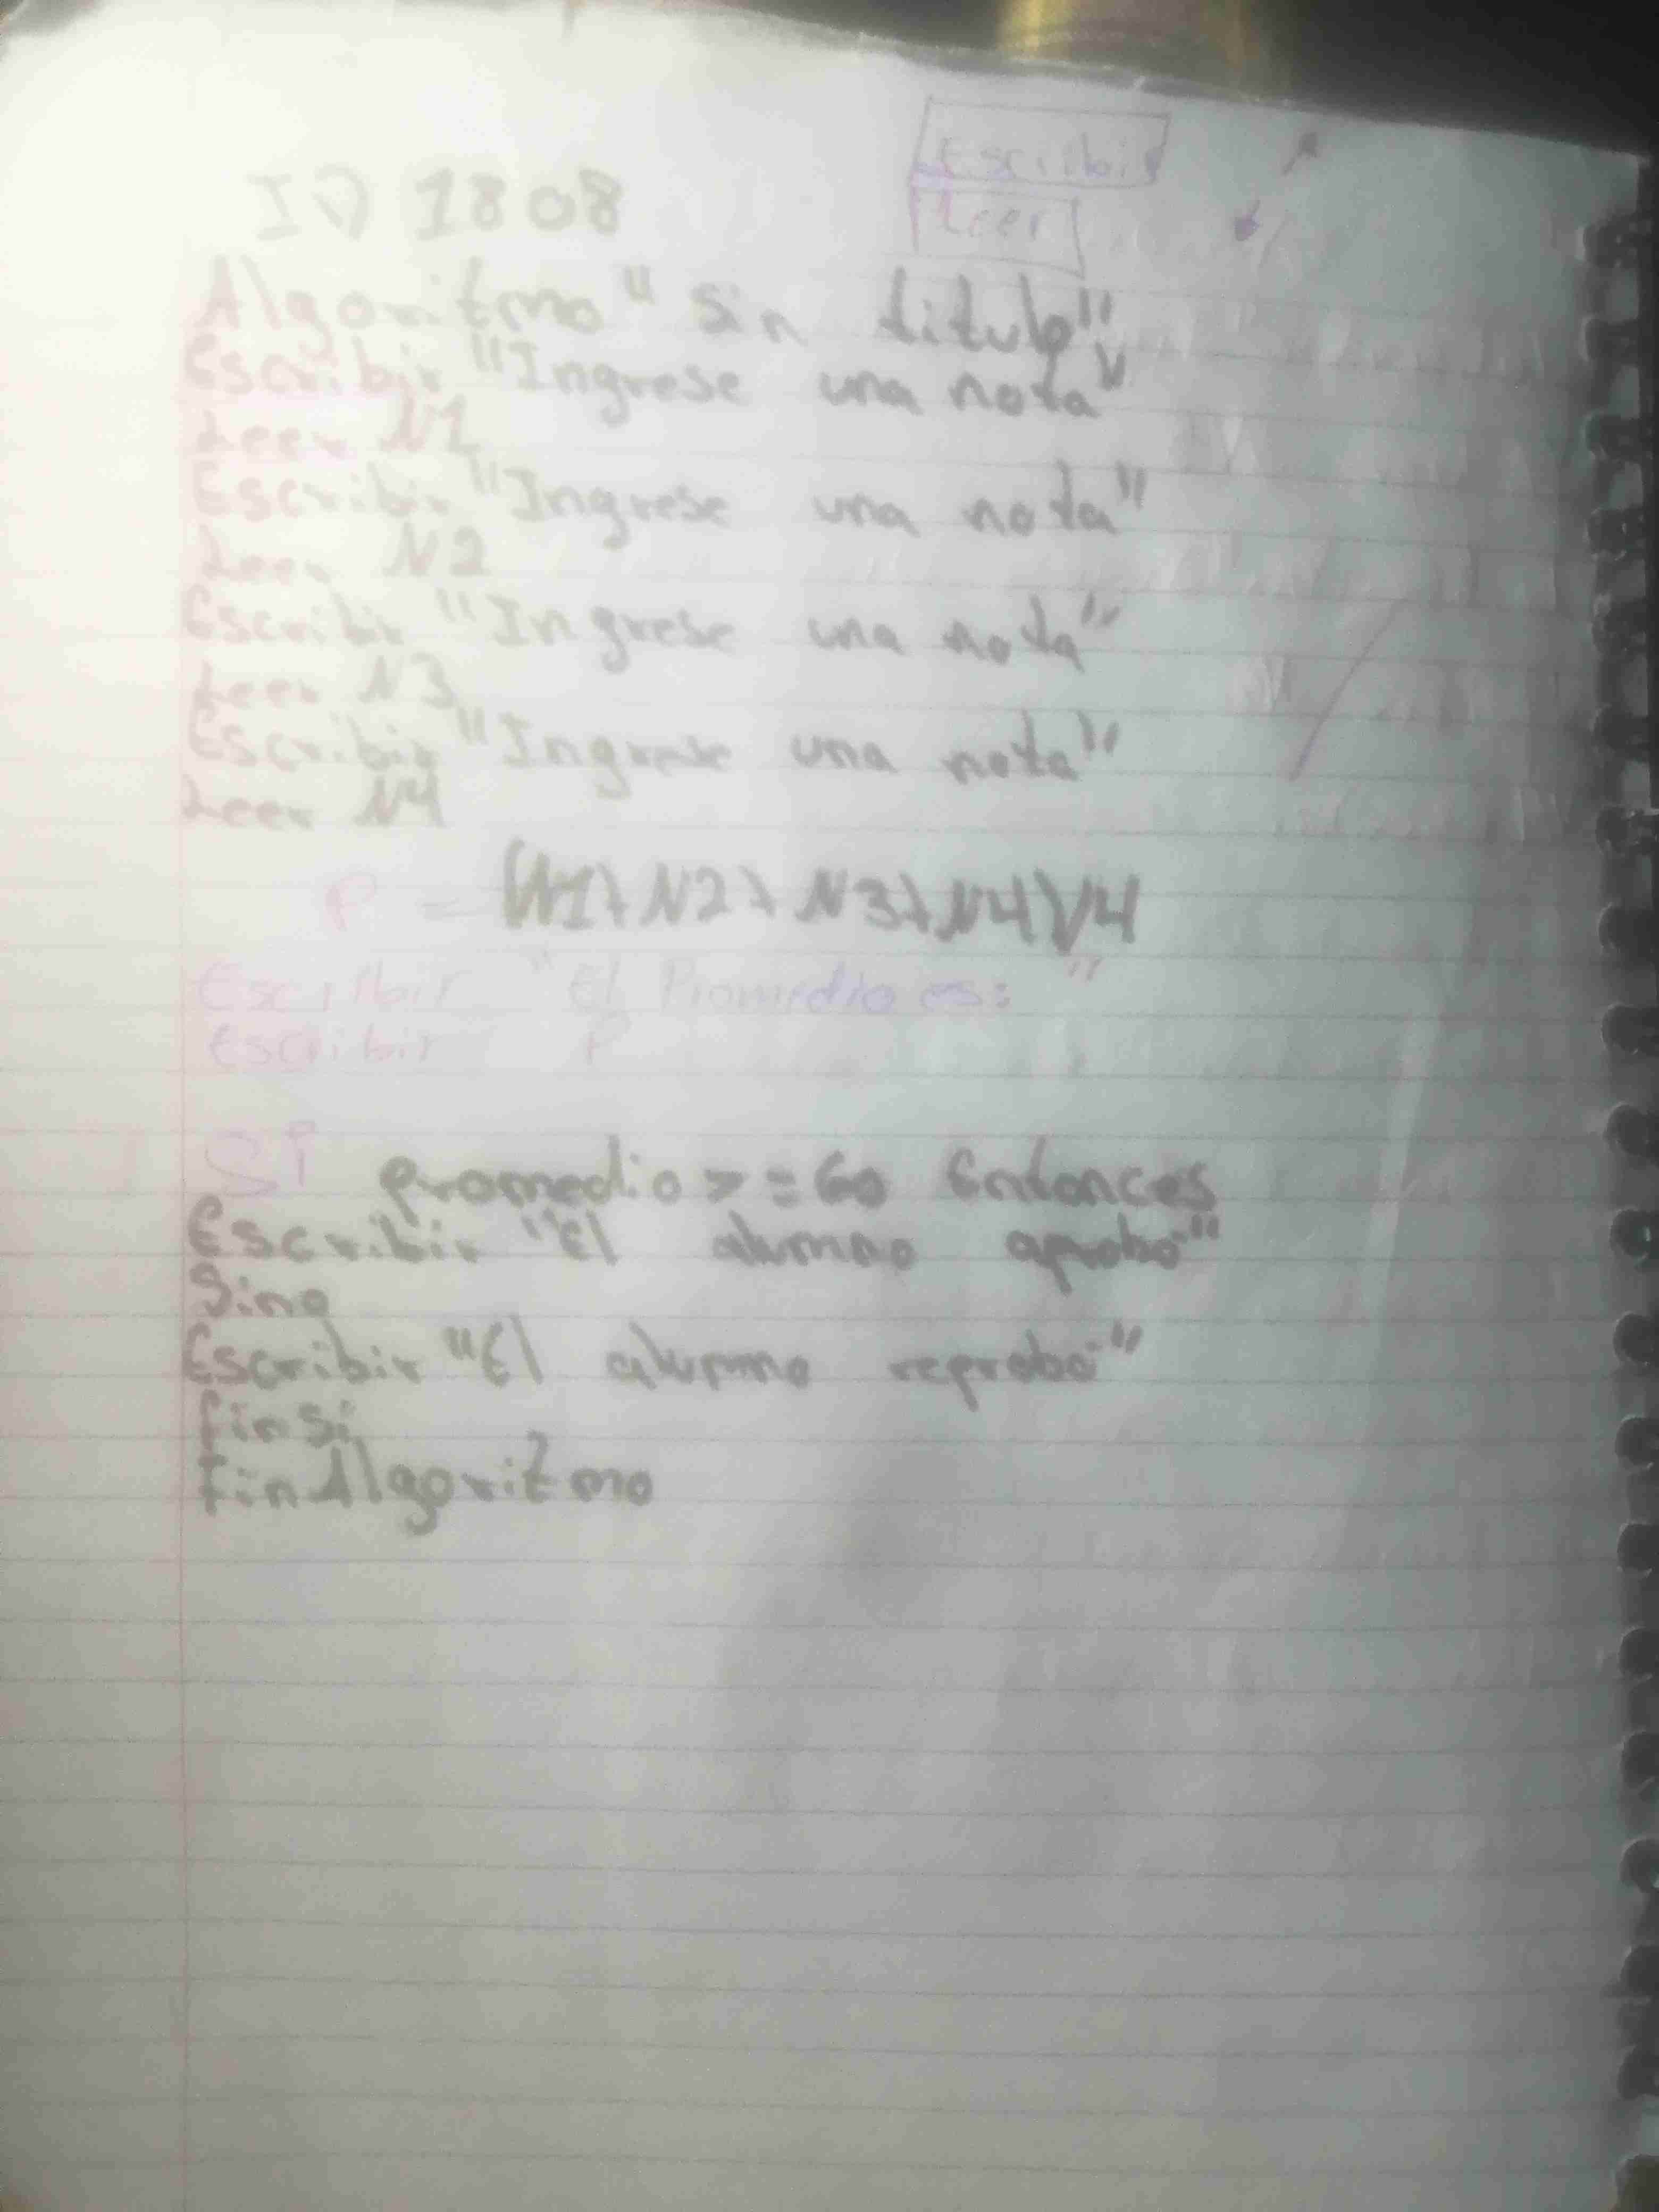 Escribir
Leer
ID 1808
Algoritmo "Sin titulo"
Escribir "Ingrese una nota"
Leer N1
Escribir "Ingrese una nota"
Leer N2
Escribir "Ingrese una nota"
Leer N3
Escribir "Ingrese una nota"
Leer N4
P = (N1+N2+N3+N4)/4
Escribir "El Promedio es: "
Escribir P
Si promedio >= 60 Entonces
Escribir "El alumno aprobó"
Sino
Escribir "El alumno reprobó"
finsi
finAlgoritmo